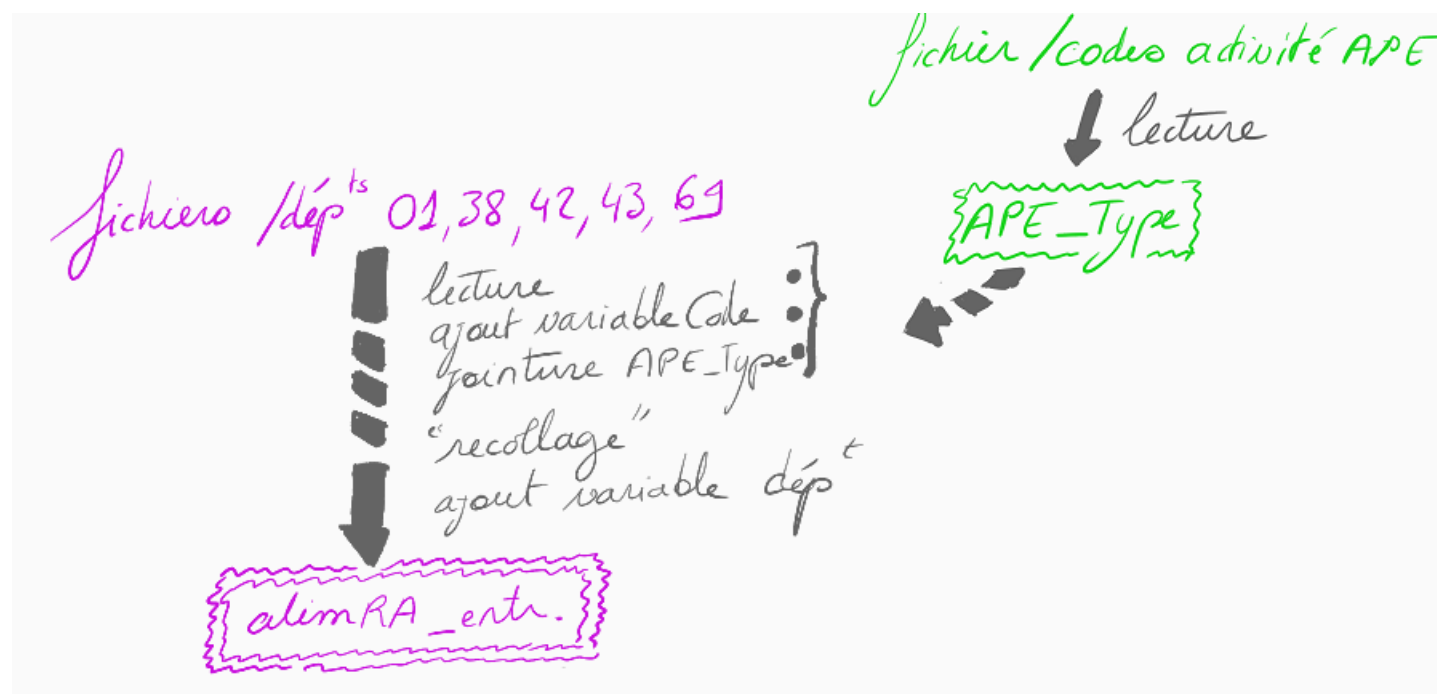 fichier /codes activité APE
lecture
fichiers /dépts 01, 38, 42, 43, 69
APE_Type
lecture
ajout variable Code
jointure APE_Type
"recollage"
ajout variable dépt
alimRA_entr.